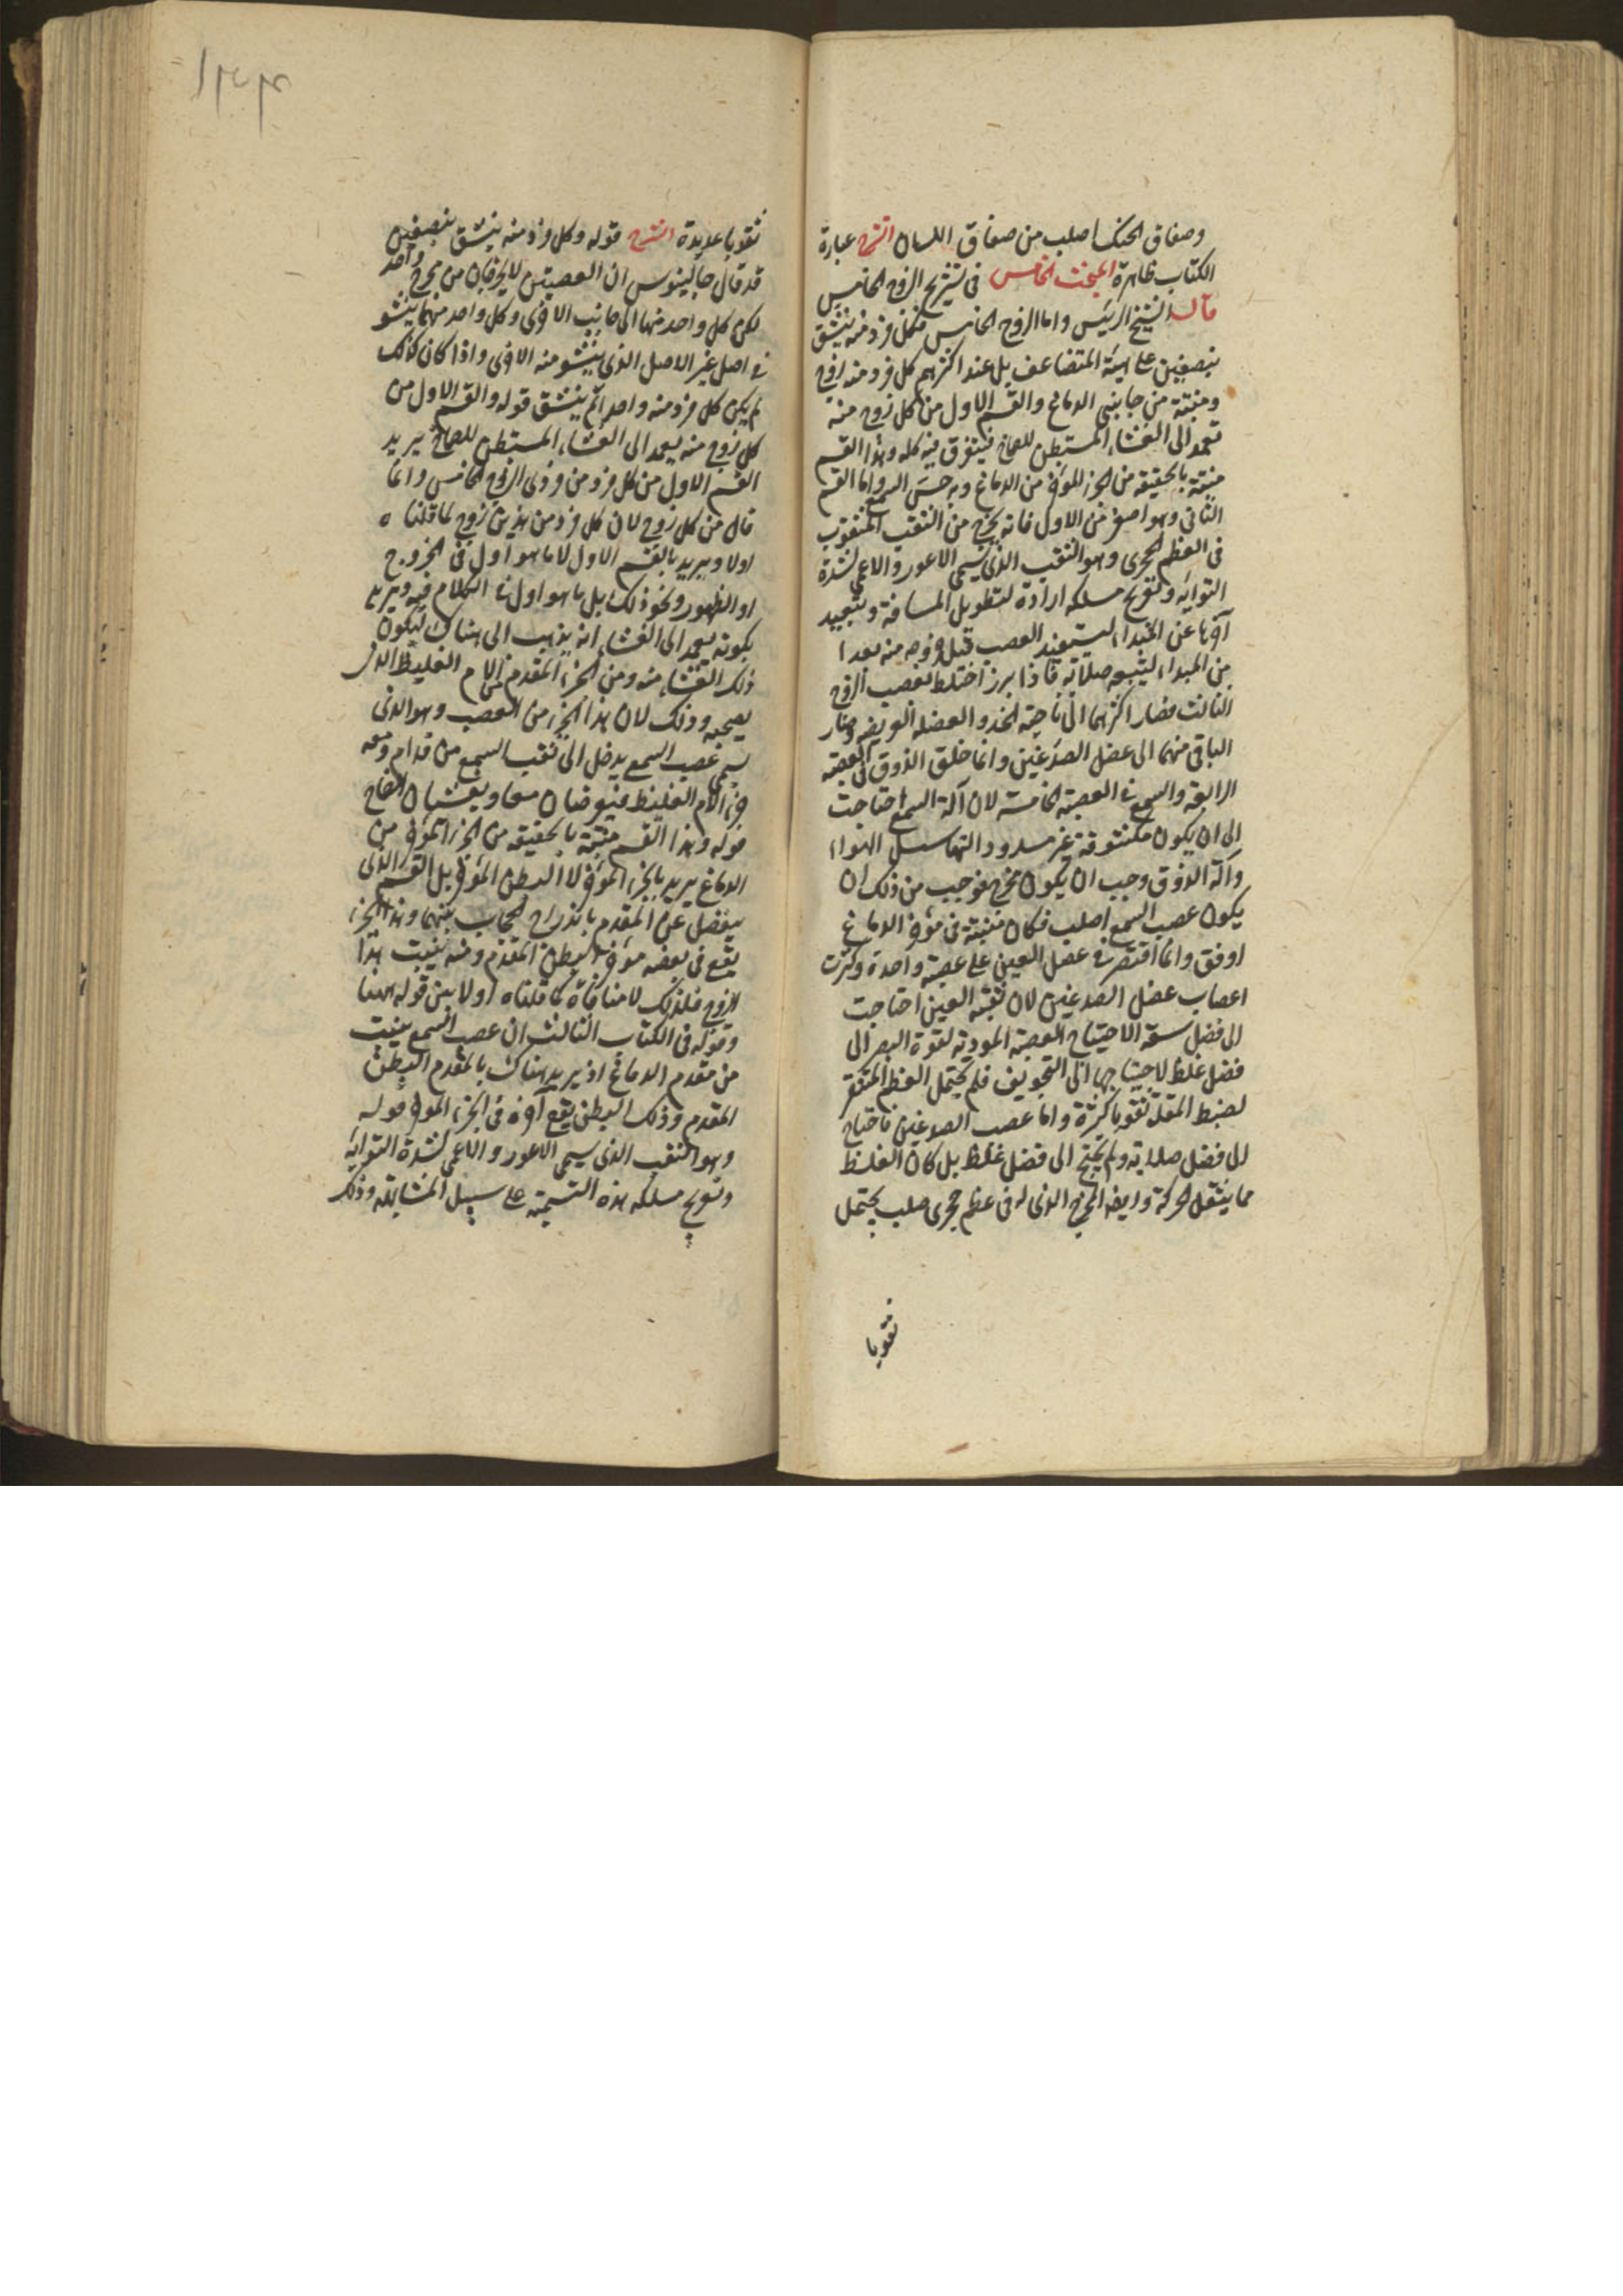 وصفاق الحنك اصلب من صفاق اللسان الشرح عبارة
الكتاب ظاهرة المبحث الخامس فى تشريح الزوج الخامس
قال الشيخ الرئيس واما الزوج الخامس فكل فرد منه ينشق
بنصفين على هيئة المتضاعف بل عند اكثرهم كل فرد منه زوج
ومنبته من جانبى الدماغ والقسم الاول من كل زوج منه
تعمد الى الغشاء المستبطن للصماخ فيتفرق فيه كله وهذا القسم
منبته بالحقيقة من الجزء المؤخر من الدماغ وبه حس السمع واما القسم
الثانى وهو اصغر من الاول فانه يخرج من الثقب المثقوب
فى العظم الحجرى وهو الثقب الذى يسمى الاعور والاعمى لشدة
التوايه وتعريج مسلكه ارادة لتطويل المسافة وتبعيد
آخرها عن المبداء ليستفيد العصب قبل خروجه منه بعدا
من المبداء ليتبعه صلابة فاذا برز اختلط بعصب الزوج
الثالث فصار اكثرهما الى ناحية الخد والعضلة العريضة وصار
الباقى منهما الى عضل الصدغين وانما خلق الذوق فى العصبة
الرابعة والسمع فى العصبة الخامسة لان آلة السمع احتاجت
الى ان يكون مكشوفة غير مسدود اليها سبيل الهواء
وآلة الذوق وجب ان يكون محرزة فوجب من ذلك ان
يكون عصب السمع اصلب فكان منبته من مؤخر الدماغ
اوفق وانما اقتصر فى عضل العين على عصبة واحدة وكثرت
اعصاب عضل الصدغين لان ثقبة العين احتاجت
الى فضل سعة الاحتياج العصبة المودية لقوة البصر الى
فضل غلظ لاحتياجها الى التجويف فلم يحتمل العظم المستقر
لضبط المقلة ثقوبا كثيرة واما عصب الصدغين فاحتاج
الى فضل صلابة ولم يحتج الى فضل غلظ بل كان الغلظ
مما يثقل الحركة وايضا المخرج الذى له فى عظم حجرى صلب يحتمل
ثقوبا
ثقوبا عديدة الشرح قوله وكل فرد منه ينشق بنصفين
قد قال جالينوس ان العصبتين لا يخرجان من مخرج واحد
لكن كل واحد منها الى جانب الاخرى وكل واحد منهما ينشو
من اصل غير الاصل الذى ينشو منه الاخرى واذا كان كذلك
لم يكن كل فرد منه واحد اثم ينشق قوله والقسم الاول من
كل زوج منه يعمد الى الغشاء المستبطن للصماخ يريد
القسم الاول من كل فرد من فردى الزوج الخامس وانما
قال من كل زوج لان كل فرد من هذين زوج لما قلناه
اولا ويريد بالقسم الاول لا ما هو اول فى الخروج
او الظهور ونحو ذلك بل ما هو اول فى الكلام فيه ويريد
بكونه يعمد الى الغشاء انه يذهب الى هناك ليكون
ذلك الغشاء منه ومن الجزء المقدم من الام الغليظ الذى
يصحبه وذلك لان هذا الجزء من العصب وهو الذى
يسمى عصب السمع يدخل الى ثقب السمع من قدام ومعه
جزء الام الغليظ فيعرضان معا ويغشيان الصماخ
قوله وهذا القسم منبته بالحقيقة من الجزء المؤخر من
الدماغ يريد بالجزء المؤخر لا البطن المؤخر بل القسم الذى
ينفصل عن المقدم باندراج الحجاب بينهما وهذا الجزء
يقع فى بعضه مؤخر البطن المقدم ومنه ينبت هذا
الزوج فلذلك لا منافاة كما قلناه اولا بين قوله ههنا
وقوله فى الكتاب الثالث ان عصب السمع ينبت
من مقدم الدماغ اذ يريد هناك بالمقدم البطن
المقدم وذلك البطن يقع آخره فى الجزء المؤخر قوله
وهو الثقب الذى يسمى الاعور والاعمى لشدة التوايه
وتعريج مسلكه هذه التسمية على سبيل المشابهة وذلك